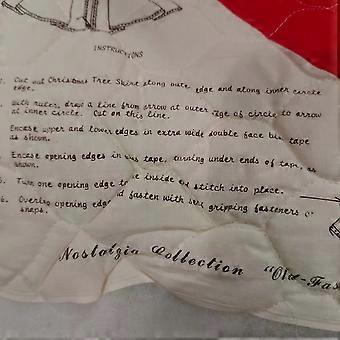 INSTRUCTIONS
Cut out Christmas Tree Skirt along outer edge and along inner circle
edge.
With ruler, draw a line from arrow at outer edge of circle to arrow
at inner circle. Cut on this line.
Encase upper and lower edges in extra wide double face bias tape
as shown.
Encase opening edges in bias tape, turning under ends of tape, as
shown.
5. Turn one opening edge to inside and stitch into place.
6. Overlap opening edge and fasten with very gripping fasteners or
snaps.
Nostalgia Collection "Old-Fas